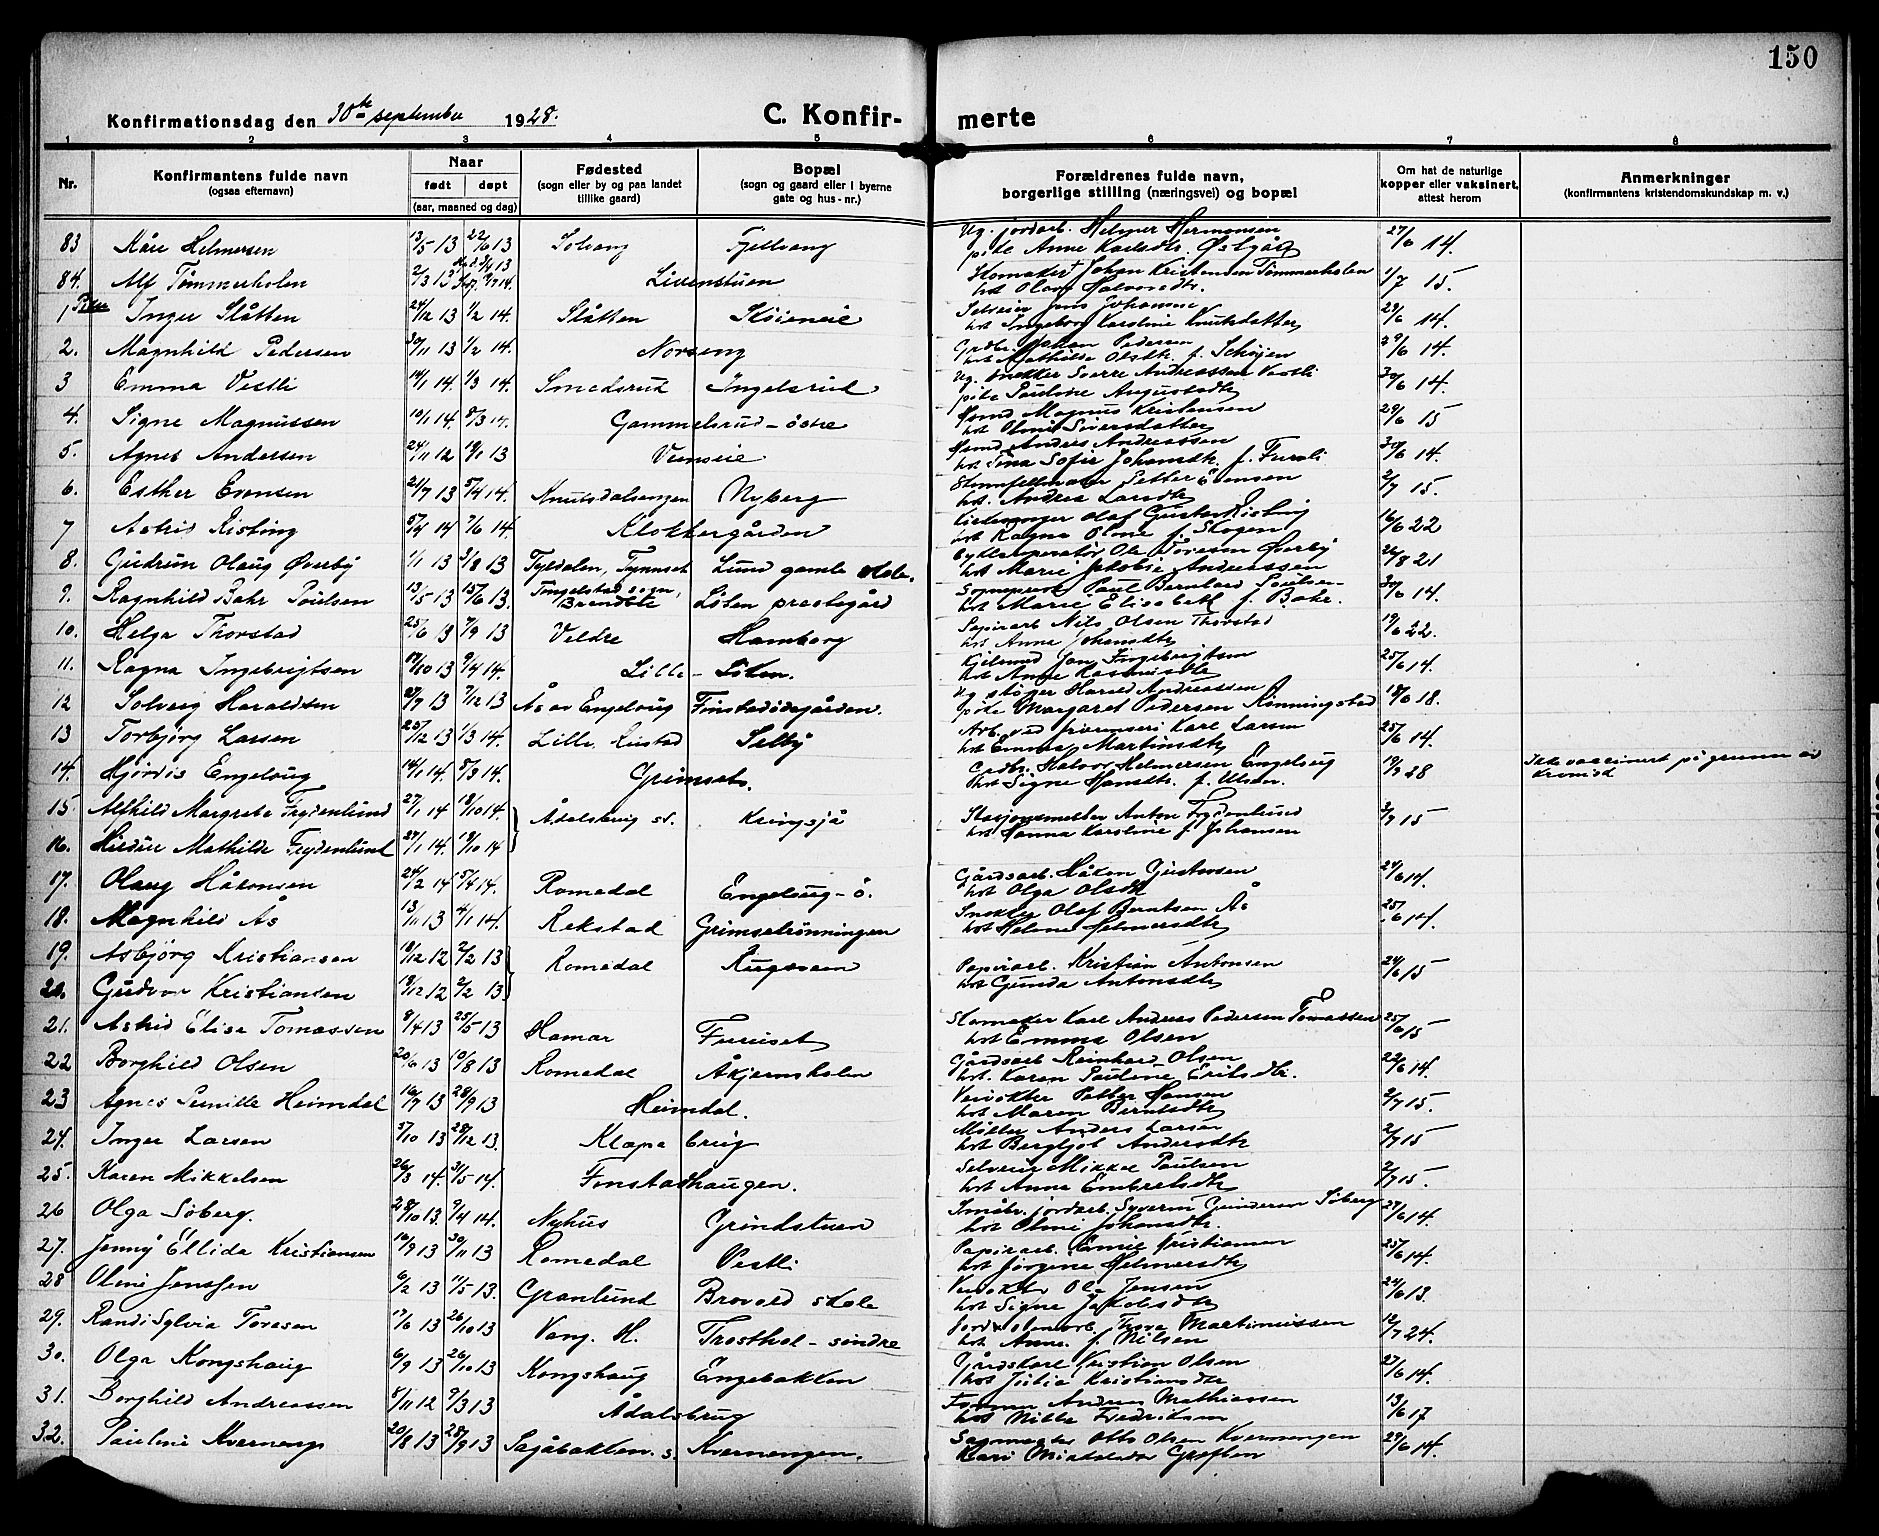 150
Konfirmationsdag den 30te september 1928.
C. Konfir- merte
1 2 3 4 5 6 7 8
Nr. Konfirmantens fulde navn (ogsaa efternavn) Naar født døpt (aar, maaned og dag) Fødested (sogn eller by og paa landet tillike gaard) Bopæl (sogn og gaard eller i byerne gate og hus-nr.) Forældrenes fulde navn, borgerlige stilling (næringsvei) og bopæl Om hat de naturlige kopper eller vaksinert, attest herom Anmerkninger (konfirmantens kristendomskundskap m. v.)
83 Kåre Helmersen 13/5 13 22/6 13 Solvang Fjellvang Ug. jordarb. Helmer Hermansen pike Anne Karlsdtr. Østgård 27/6 14
84. Alf Tömmerholen 2/3 13 Livenstuen Skomaker Johan Kristensen Tömmerholen hst Olava Halvorsdtr. 1/7 15
Piker
1 Inger Slåtten 24/12 13 1/2 14. Slåtten Skøieneie Selveier Jens Johansen hst Ingeborg Karoline Knutsdatter 29/6 14.
2. Magnhild Pedersen 30/11 13 1/2 14. Norseng Grdbr. Johan Pedersen hst Mathilde Olsdtr. f. Schøjen 29/6 14.
3 Emma Vestli 14/1 14. 1/3 14. Smedsrud Ingelsrud Ug. snekker Sverre Andreassen Vestli pike Pauline Augustsdtr 30/6 14.
4. Signe Magnussen 10/1 14. 8/3 14. Gammelsrud-östre Hsmd Magnus Kristensen hst Oline Siversdatter 29/6 15
5. Agnes Andersen 24/11 12 19/1 13 Vienseie Hsmd Anders Andreassen hst Tina Sofie Johansdtr. f. Furuli 30/6 14.
6. Esther Evensen 21/7 13 5/4 14. Knutsdalsengen Nyberg Petter Evensen hst. Andrea Larsdtr 2/7 15.
7 Astrid Risting 5/4 14 7/6 14. Klokkergården Kirkesanger Olaf Gustav Risting hst Ragna Oline f. Skogen 16/6 22
8. Gudrun Olaug Øverby 1/1 13 3/8 13 Tyldalen, Tynnset Lund gamle skole. Ole Toresen Øverby hst Marie Jakobie Andreassen 26/8 21
9. Ragnhild Bahr Poulsen 13/5 13 15/6 13. Tingelstad sogn, Brandbu Löten prestegård Sogneprest Paul Bernhard Poulsen hst Marie Elisabeth f. Bahr. 30/6 14.
10. Helga Thorstad 25/6 13 7/9 13 Veldre Hamborg Papirarb. Nils Olsen Thorstad hst. Anne Johansdtr 19/6 22.
11. Ragna Ingebrigtsen 17/10 13 9/4 14. Lille-Löten. Jon Ingebrigtsen hst Anne Rasmusdtr 25/6 14.
12 Solveig Haraldsen 27/9 13 7/12 13 Ås av Engelaug Finstadödegården. Ug støper Harald Andreassen pike Margaret Pedersen Rönningstad 18/6 18.
13 Torbjörg Larsen 25/12 13 1/3 14. Lille Rustad Selby Arb. ved Karl Larsen hst Emma Martinsdtr 25/6 14.
14. Hjördis Engelaug 14/1 14. 8/3 14. Grimset. Grdbr. Halvor Helmersen Engelaug hst Signe Hansdtr. f. Uleån. 19/9 28 Ikke vaccinert på grunn av
15. Alfhild Margrete Frydenlund 27/1 14 18/10 14. Ådalsbrug st. Kringsjå Stasjonsmester Anton Frydenlund hst Hanna Karoline f. Johansen 2/7 15
16. Hildur Mathilde Frydenlund 27/1 14. 18/10 14
17. Olaug Håkonsen 24/2 14 5/4 14. Romedal Engelaug-ö. Gårdsarb. Håkon Gustavsen hst Olga Olsdtr 24/6 14.
18. Magnhild Ås 13/11 13 4/1 14. Rekstad Grimsetrönningen Snekker Olaf Berntsen Ås hst Helene Helmersdtr 25/6 14.
19. Asbjörg Kristiansen 18/12 12 2/2 13 Romedal Rugsveen Papirarb. Kristian Antonsen hst Gunda Antonsdtr 24/6 15
20. Gudvor Kristiansen 18/12 12 2/2 13
21. Astrid Elise Tomassen 9/4 13 25/5 13 Hamar Furuset Skomaker Karl Andreas Pedersen Tomassen hst Emma Olsen 25/6 15
22 Borghild Olsen 20/6 13 10/8 13 Romedal Åkjernsholen Gårdsarb Reinhard Olsen hst. Karen Pauline Eriksdtr. 22/6 14.
23 Agnes Pernille Heimdal 16/7 13 28/9 13 Heimdal. Veivokter Petter Hansen hst Maren Berntsdtr 2/7 15.
24. Inger Larsen 5/10 13 28/12 13. Klæpa brug Möller Anders Larsen hst Bergljot Andersdtr 2/7 15
25. Karen Mikkelsen 26/3 14. 31/5 14. Finstadhaugen. Selveier Mikkel Paulsen hst Anna Embretsdtr 2/7 15
26 Olga Söberg. 28/10 13. 9/4 14. Nyhus Grindstuen Småbr. jordarb. Syverin Gundersen Söberg hst Oline Johansdtr. 27/6 14.
27. Jenny Ellida Kristiansen 16/9 13 30/11 13 Romedal Vestli Papirarb. Emil Kristiansen hst Jörgine Helmersdtr 25/6 14.
28 Oline Janssen 6/2 13 11/5 13. Granlund Brovold skole Veivokter Ole Jensen hst Signe Jakobsdtr 24/6 13.
29. Randi Sylvia Toresen 17/6 13 26/10 13 Vang. H. Trosthol-söndre Thora Martinussen hst Anne f. Nilsen 12/7 24.
30. Olga Kongshaug 6/9 13 26/10 13 Kongshaug Engebakken Gårdskarl Kristian Olsen hst Julia Kristiansdtr 27/6 14.
31. Borghild Andreassen 8/11 12 9/3 13 Ådalsbrug Andreas Mathiassen hst Fredriksen 13/6 17
32. Pauline Kverneng 20/8 13 28/9 13 Sagåbakken. s. Kvernengen. Sagmester Otto Olsen Kvernengen Kari 29/6 14.